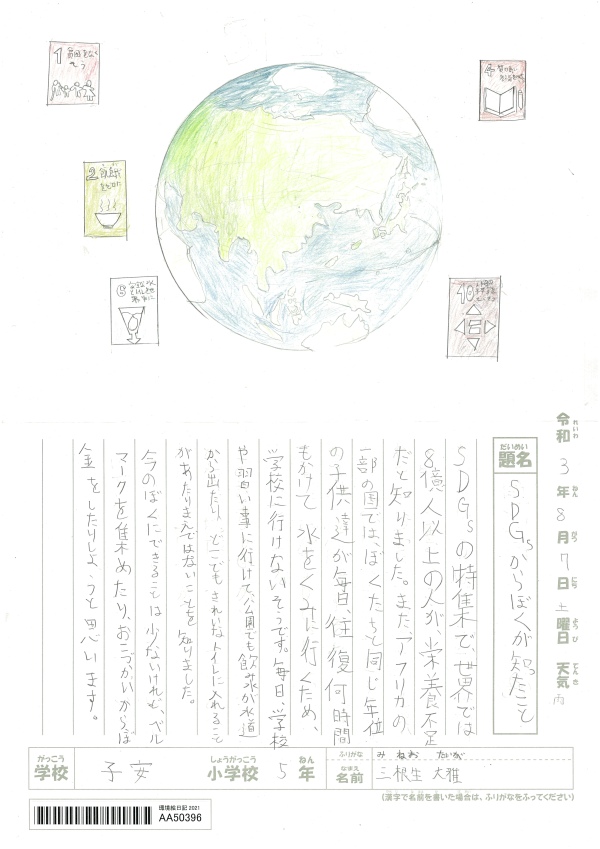 1 貧困をなくそう
2 飢餓をゼロに
4 質の高い教育をみんなに
6 安全な水とトイレを世界中に
10
令和3年8月7日土曜日 天気 雨
れいわ ねん がつ にち ようび てんき
だいめい
題名
SDGsからぼくが知ったこと
SDGsの特集で、世界では
8億人以上の人が、栄養不足
だと知りました。また、アフリカの
一部の国では、ぼくたちと同じ年位
の子供達が毎日、往復何時間
もかけて水をくみに行くため、
学校に行けないそうです。毎日、学校
や習い事に行けて、公園でも飲水が水道
から出たり、どこでもきれいなトイレに入れること
があたりまえではないことを知りました。
今のぼくにできることは少ないけれど、ベル
マークを集めたり、おこづかいからぼ
金をしたりしようと思います。
がっこう
学校
子安
しょうがっこう
小学校
5
ねん
年
ふりがな
みねお たいが
なまえ
名前
三根生 大雅
(漢字で名前を書いた場合は、ふりがなをふってください)
環境絵日記 2021
AA50396